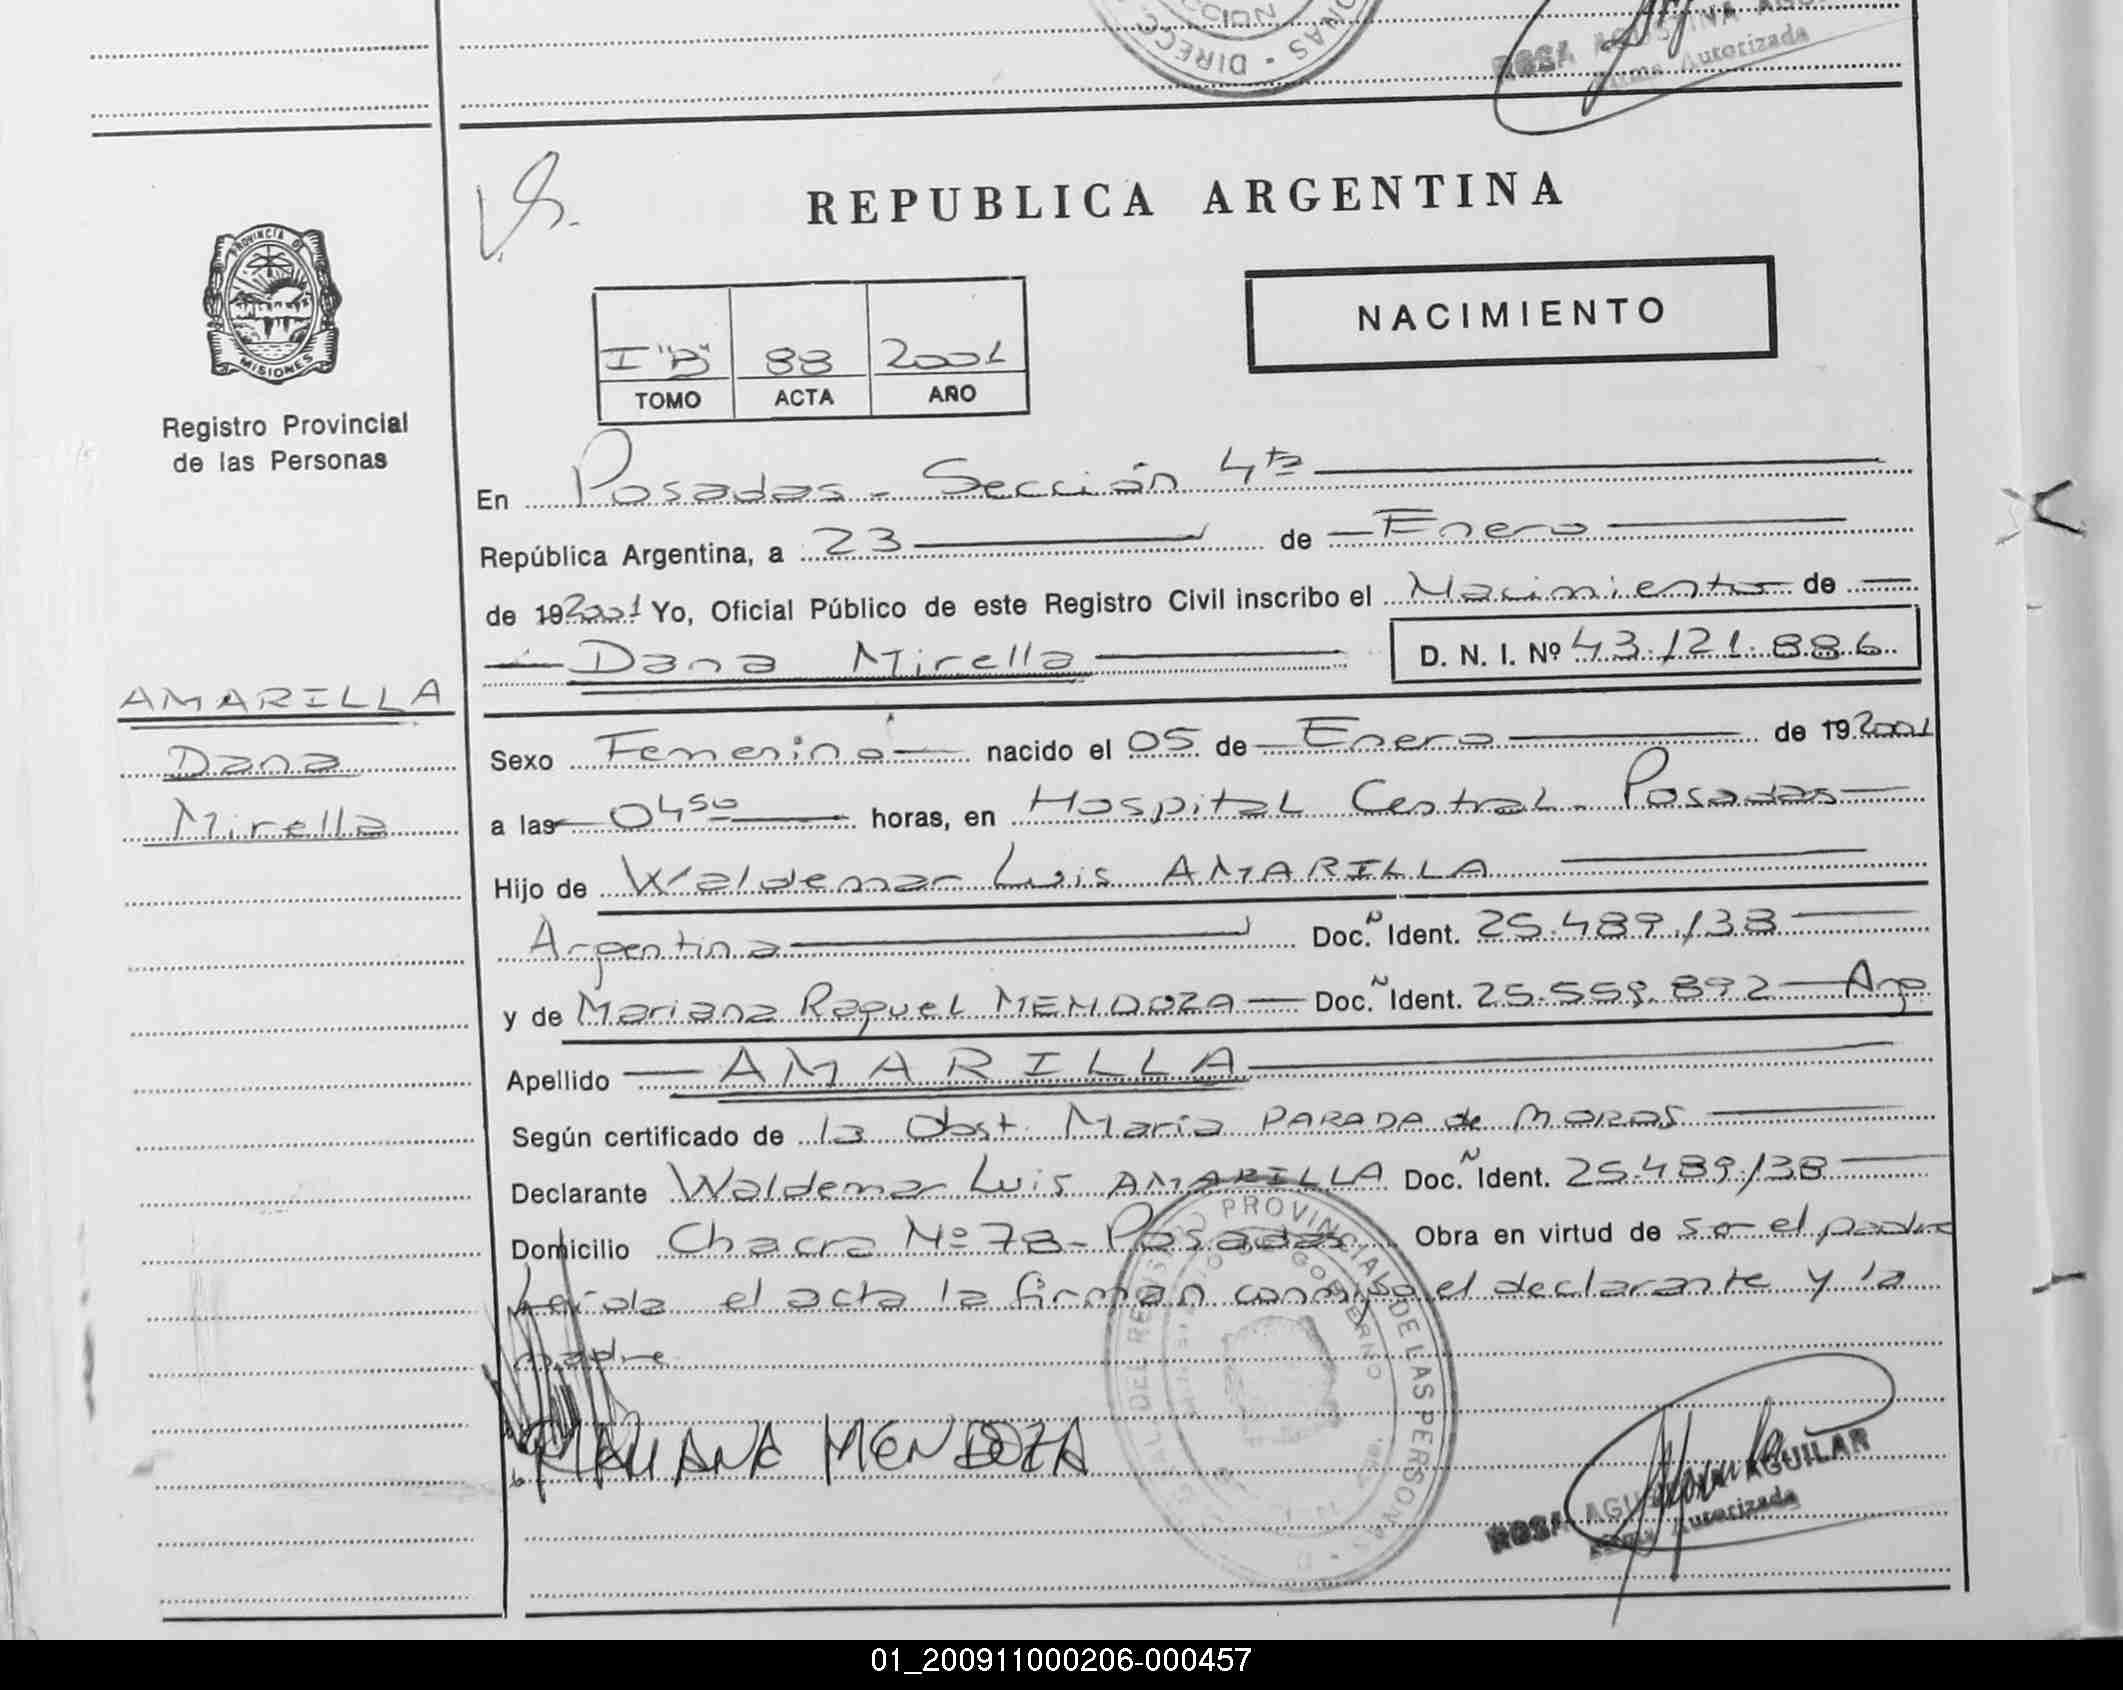 CCION
DIRECC
ONAS
ROSA AGUSTINA
Firma Autorizada
REPUBLICA ARGENTINA
PROVINCIA DE
MISIONES
Registro Provincial
de las Personas
NACIMIENTO
I "B" 88 2001
TOMO ACTA AÑO
En Posadas - Sección 4ta
República Argentina, a 23 de Enero
de 192001 Yo, Oficial Público de este Registro Civil inscribo el Nacimiento de
Dana Mirella D. N. I. Nº 43.121.886
AMARILLA
Dana
Mirella
Sexo Femenino nacido el 05 de Enero de 192001
a las 04 50 horas, en Hospital Central - Posadas
Hijo de Waldemar Luis AMARILLA
Argentina Doc. Ident. 25.489.138
y de Mariana Raquel MENDOZA Doc. Ident. 25.559.892 - Arg
Apellido AMARILLA
Según certificado de la Obst. María PARADA de MORAS
Declarante Waldemar Luis AMARILLA Doc. Ident. 25.489.138
Domicilio Chacra Nº 78 - Posadas Obra en virtud de ser el padre
Leída el acta la firman conmigo el declarante y la
madre
MARIANA MENDOZA
PROVINCIAL DE LAS PERSONAS
GOBIERNO
ROSA AGUSTINA AGUILAR
Firma Autorizada
01_200911000206-000457